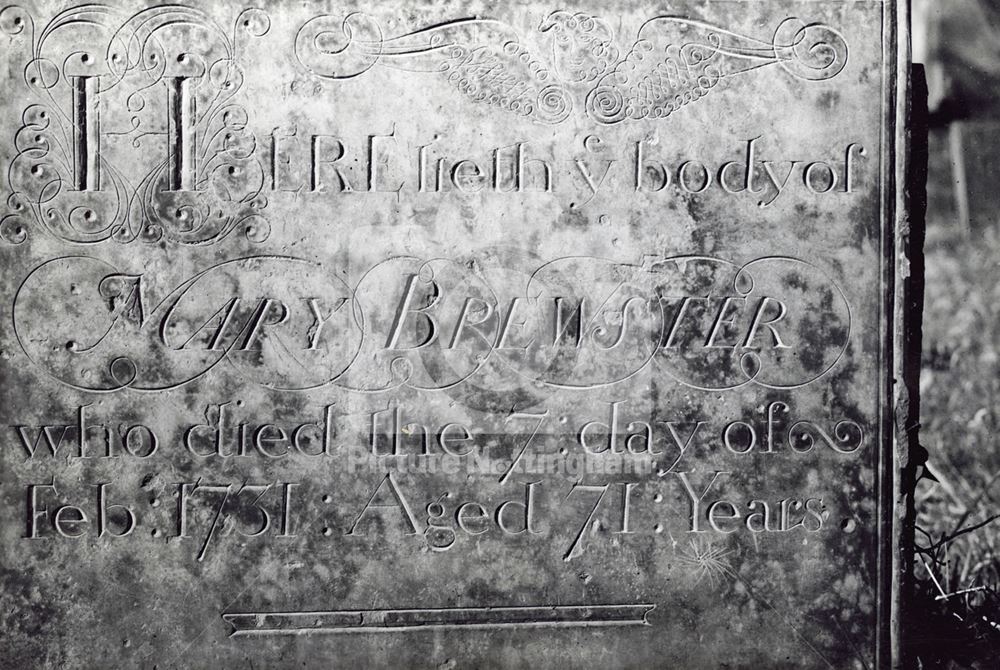 HERE lieth yᵉ body of
MARY BREWSTER
who died the 7: day of
Feb: 1731: Aged 71: Years
Picture Nottingham